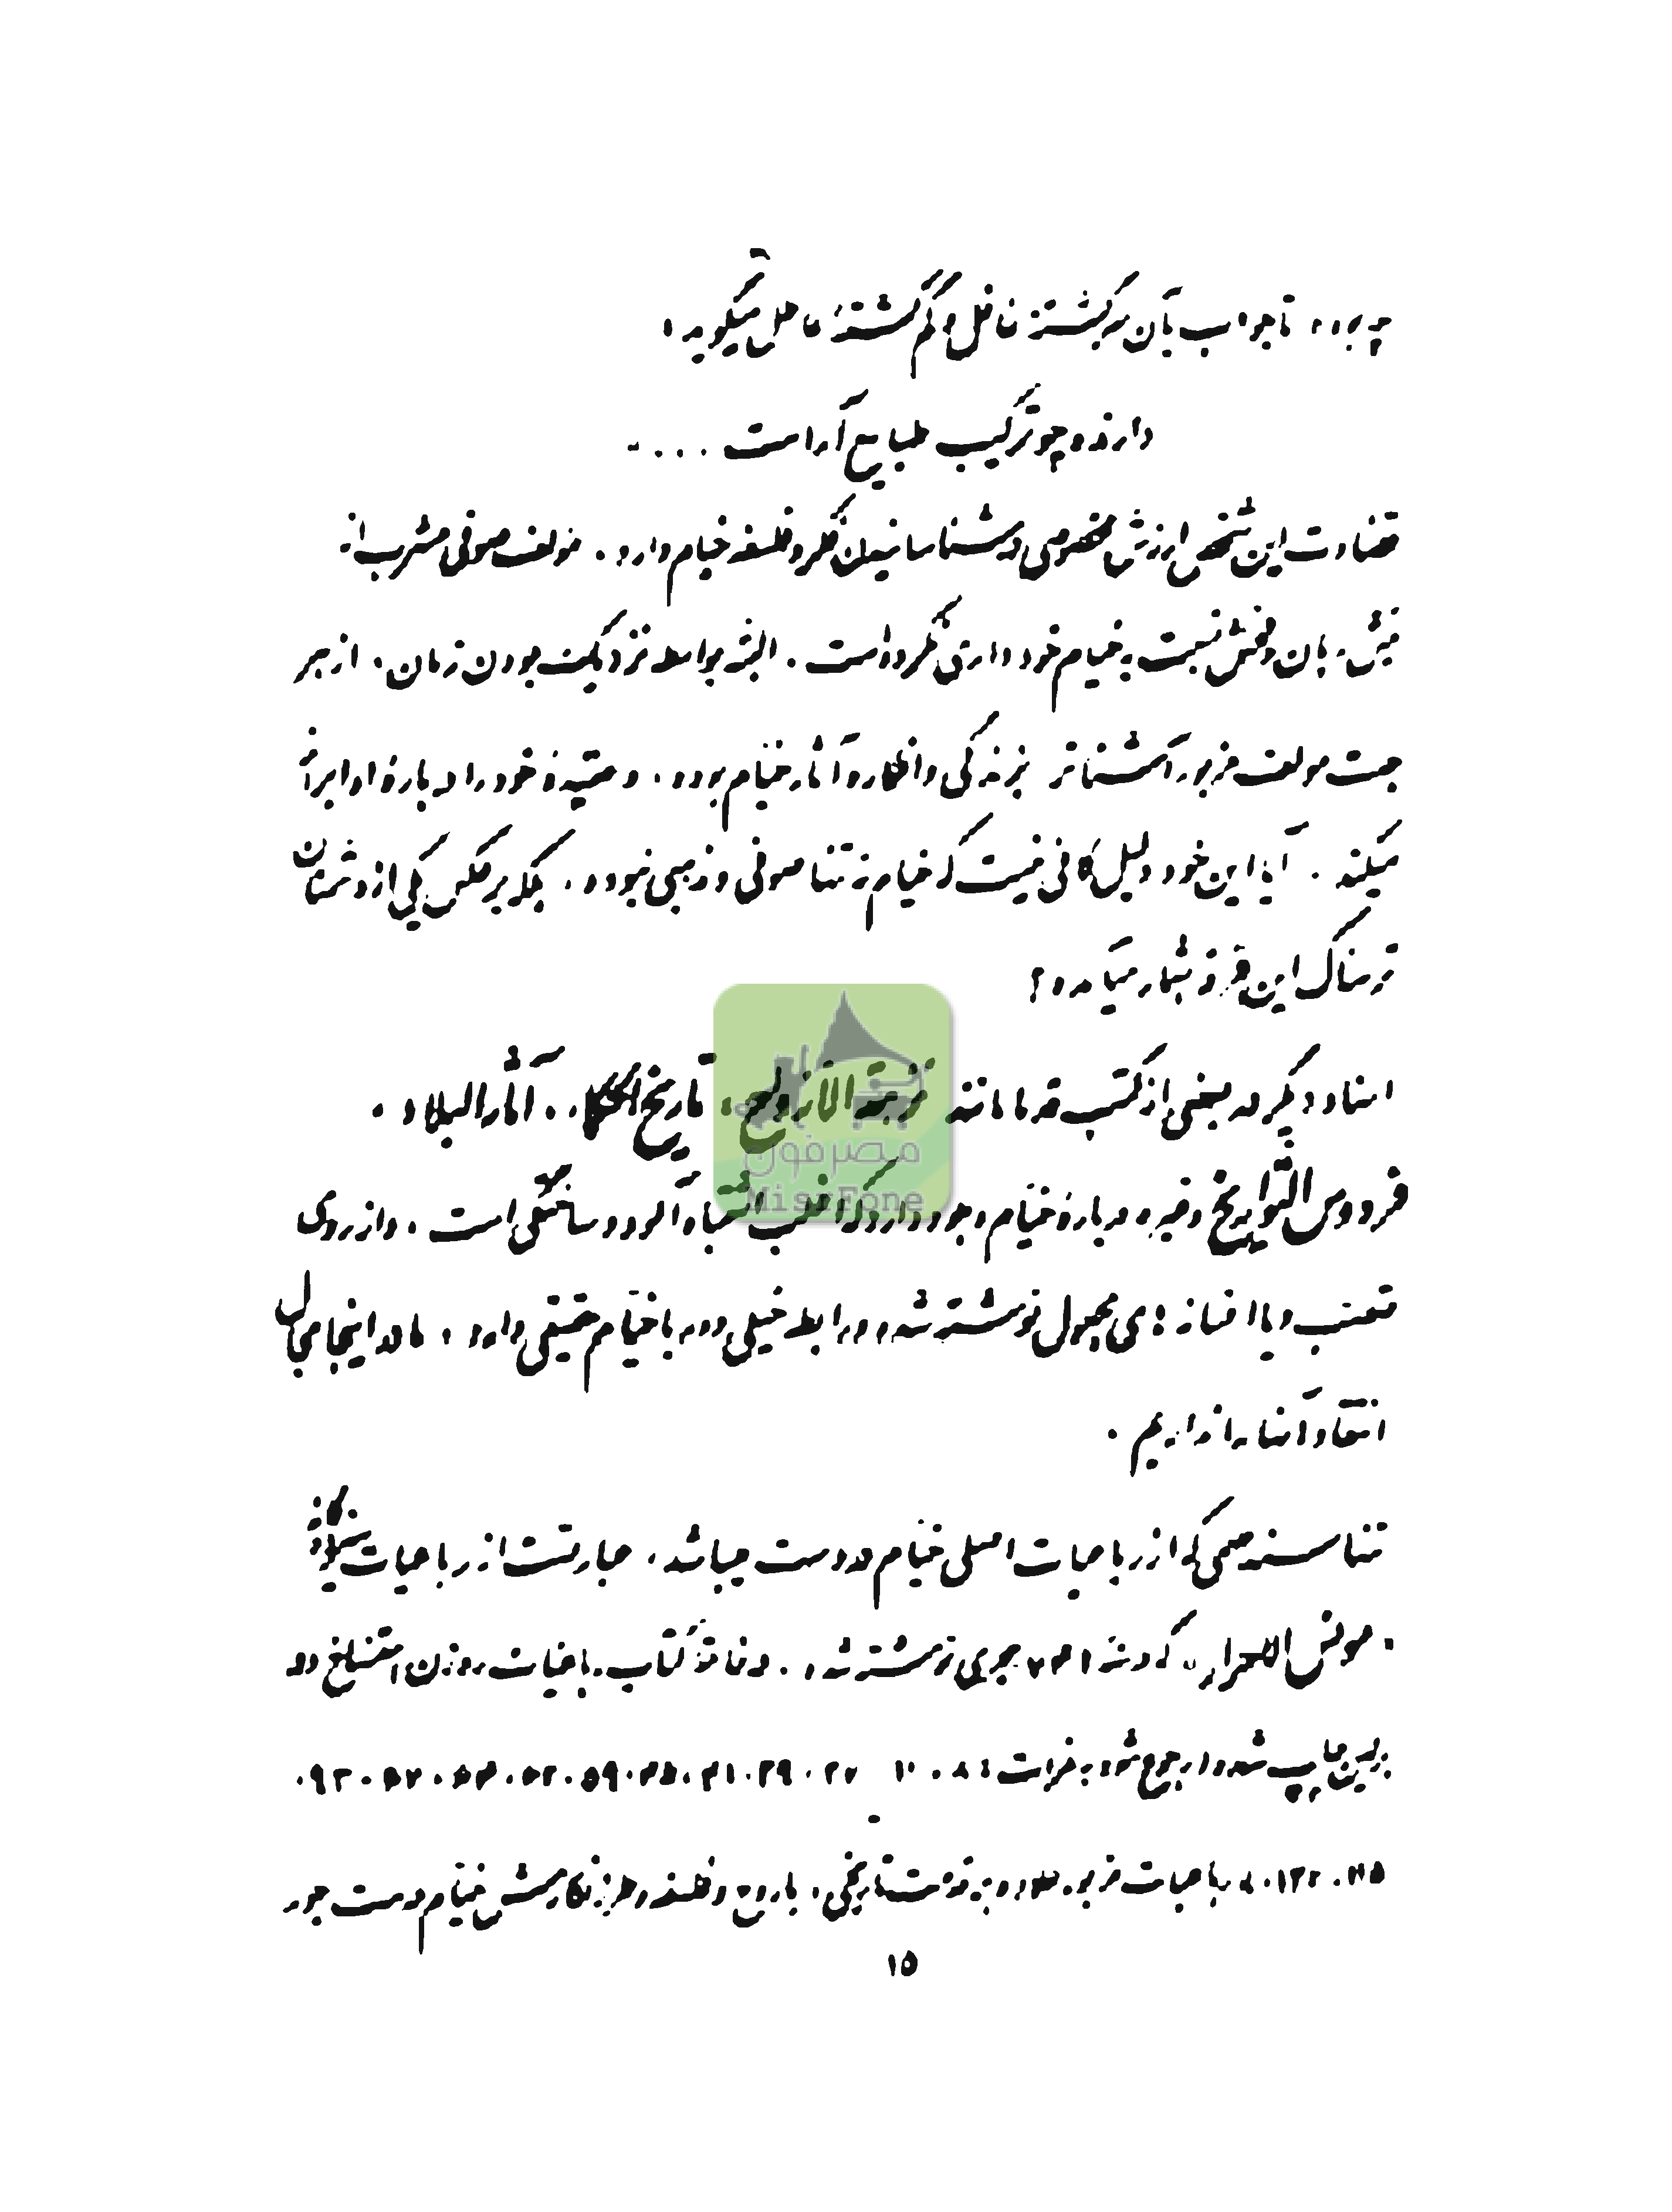 چه بود، تا جواب بآن سرگشتهٔ غافل و گم گشتهٔ عاطل میگوید:
دارنده چو ترکیب طبایع آراست ....
قضاوت این شخص ارزش مخصوصی در شناسانیدن فکر و فلسفه خیام دارد. مؤلف صوفی مشرب از
نیش زبان و فحش نسبت به خیام خودداری نکرده است. البته بواسطه نزدیک بودن زمان، از هر
جهت مؤلف مزبور آشناتر بزندگی و افکار و آثار خیام بوده، و عقیدهٔ خود را دربارهٔ او ابراز
میکند. آیا این خود دلیل کافی نیست که خیام نه تنها صوفی و مذهبی نبوده، بلکه برعکس یکی از دشمنان
ترسناک این فرقه بشمار میآمده؟
اسناد دیگر در بعضی از کتب قدما مانند نزهة الارواح، تاریخ الحکماء، آثار البلاد،
فردوس التواریخ وغیره دربارهٔ خیام وجود دارد که اغلب اشتباه آلود و ساختگی است، و از روی
تعصب و یا افسانه های مجهول نوشته شده و رابطه خیلی دور با خیام حقیقی دارد، ما در اینجا مجال
انتقاد آنها را نداریم.
تنها سند مهمی که از رباعیات اصلی خیام در دست میباشد، عبارتست از رباعیات سیزده گانهٔ
«مونس الاحرار» که در سنهٔ ۷۴۱ هجری نوشته شده، و در خاتمهٔ کتاب رباعیات روزن استنساخ و در
برلین چاپ شده (رجوع شود به نمرات: ۸، ۱۰، ۲۷، ۲۹، ۴۱، ۴۵، ۵۹، ۶۲، ۶۴، ۶۷، ۹۳،
۱۱۵، ۱۲۷) رباعیات مزبور علاوه بر قدمت تاریخی، با روح و فلسفه و طرز نگارش خیام درست جور
۱۵
مصرفون
MisrFone